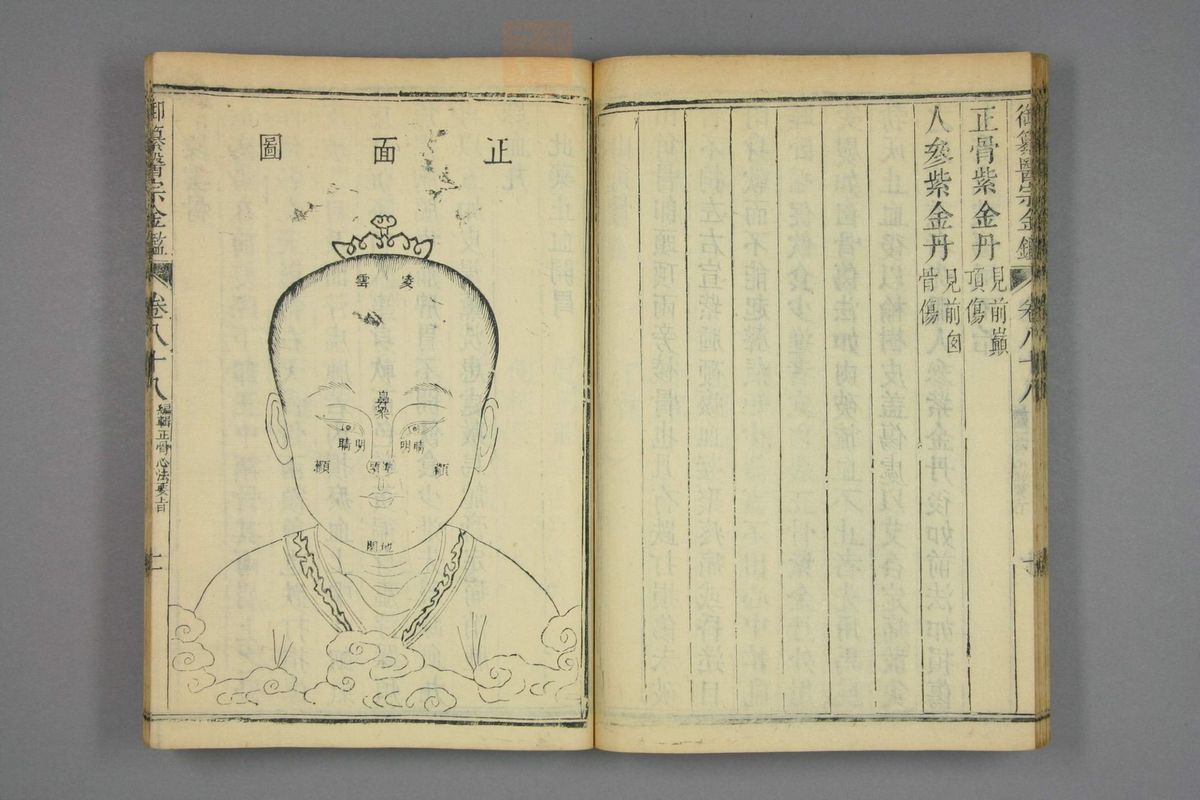 御纂醫宗金鑑 卷八十八
正骨紫金丹 見前巔頂傷
人參紫金丹 見前囟骨傷
正面圖
凌雲
鼻梁
睛明
明睛
顴
顴
準頭
地閣
御纂醫宗金鑑 卷八十八 編輯正骨心法要旨